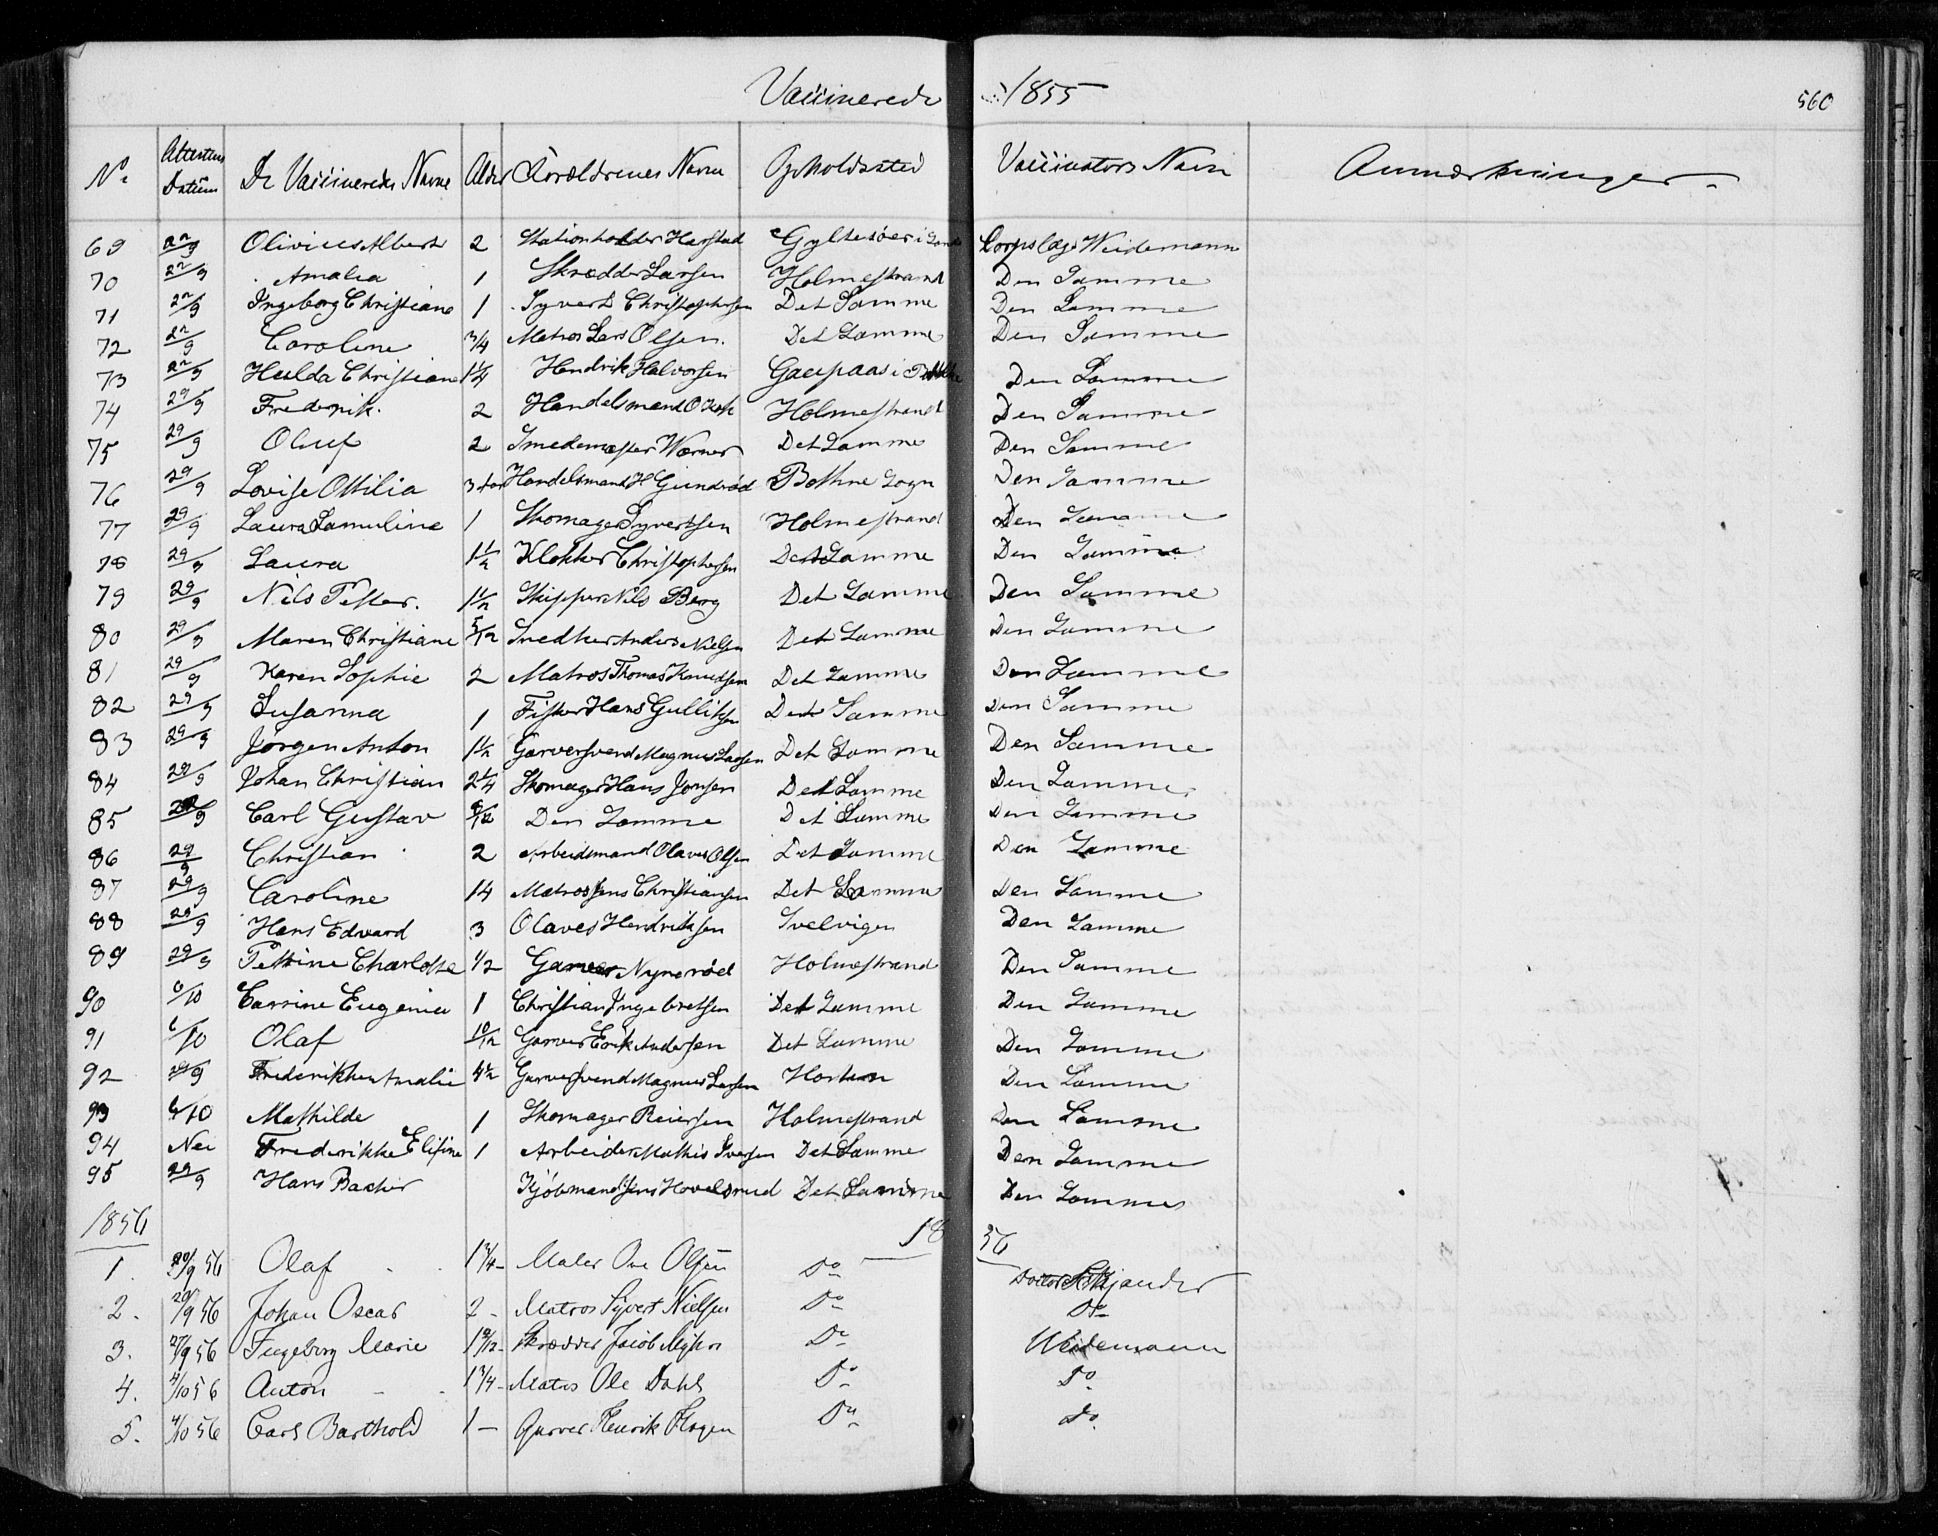 Vaccinerede 1855 560
No. Attestens Datum De Vaccineredes Navne Alder Forældrenes Navne Opholdssted Vaccinators Navn Anmærkninger.
69 22/9 Olivius Albert 2 Stationholder Harstad Corpslæge Weidemann
70 22/9 Amalia 1 Skrædder Larsen Holmestrand Den Samme
71 22/9 Ingeborg Christiane 1 Syvert Christophersen Det Samme Den Samme
72 22/9 Caroline 3/4 Matros Lars Olsen. Det Samme Den Samme
73 22/9 Hulda Christiane 1 1/4 Hendrik Halvorsen Den Samme
74 29/9 Frederik. 2 Handelsmand Holmestrand Den Samme
75 29/9 Oluf 2 Smedemester Werner Det Samme Den Samme
76 29/9 Lovise Ottilia Handelsmand H Gundrød Bothne Sogn Den Samme
77 29/9 Laura Samuline 1 Skomager Syvertsen Holmestrand Den Samme
78 29/9 Laura 1 1/2 Klokker Christophersen Det Samme Den Samme
79 29/9 Nils Petter. 1 1/2 Skipper Nils Berg Det Samme Den Samme
80 29/9 Maren Christiane 5/12 Snedker Anders Nielsen Det Samme Den Samme
81 29/9 Karen Sophie 2 Matros Thomas Knudsen Det Samme Den Samme
82 29/9 Susanna 1 Fisker Hans Gulliksen Det Samme Den Samme
83 29/9 Jørgen Anton 1 1/2 Garversvend Magnus Larsen Det Samme Den Samme
84 29/9 Johan Christian 2 1/4 Skomager Hans Jonsen Det Samme Den Samme
85 29/9 Carl Gustav Den Samme Det Samme Den Samme
86 29/9 Christian 2 Arbeidsmand Olaves Olsen Det Samme Den Samme
87 29/9 Caroline 14 Matros Jens Christiansen Det Samme Den Samme
88 29/9 Hans Edvard 3 Olaves Hendriksen Svelvigen Den Samme
89 29/9 Petrine Charlotte 1/2 Garver Nynerød Holmestrand Den Samme
90 6/10 Carrine Eugenia 1 Christian Ingebretsen Det Samme Den Samme
91 6/10 Olaf 10/12 Garver Erik Andersen Det Samme Den Samme
92 29/9 Frederikke Amalie 4 1/2 Garversvend Magnus Larsen Horten Den Samme
93 6/10 Mathilde 1 Skomager Reiersen Holmestrand Den Samme
94 Nei Frederikke Elisine 1 Arbeider Mathis Iversen Det Samme Den Samme
95 29/9 Hans Backer Kjøbmand Jens Hovelsrud Det Samme Den Samme
1856 1856
1. 20/9 56 Olaf 1 3/4 - Maler Ove Olsen Do
2. 20/9 56 Johan Oscar 2 - Matros Syvert Nielsen Do Do
3. 27/9 56 Ingeborg Marie Skrædder Jacob Do Weidemann
4. 4/10 56 Anton 1 3/4 - Matros Ole Dahl Do Do
5. 4/10 56 Carl Barthold 1 - Garver Henrik Hagen Do Do